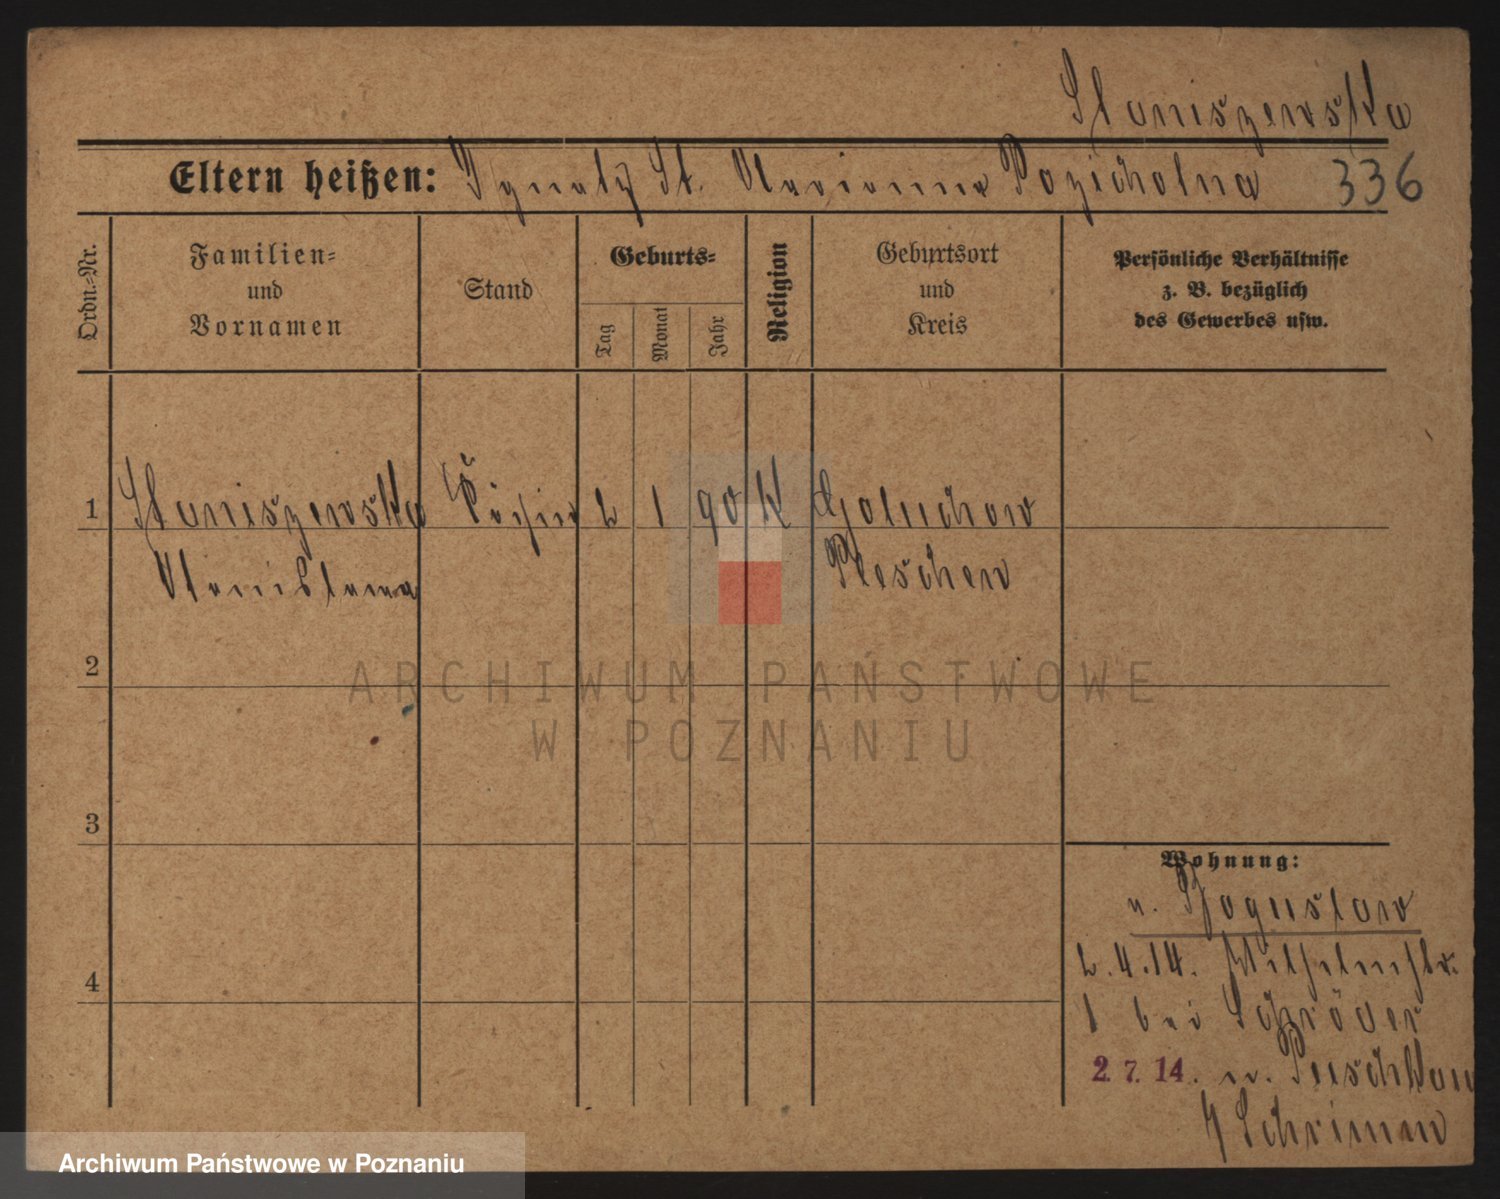 Staniszewska
Eltern heißen: Ignatz St. Marianna Pozicholna 336
Ordn.-Nr.
Familien-
und
Vornamen
Stand
Geburts-
Tag
Monat
Jahr
Religion
Geburtsort
und
Kreis
Persönliche Verhältnisse
z. B. bezüglich
des Gewerbes usw.
1 Staniszewska Köchin 2 1 90 K Goluchow
Stanislawa Pleschen
2
ARCHIWUM PAŃSTWOWE
W POZNANIU
3
Wohnung:
v. Boguslaw
2.4.14. Wilhelmstr.
4
1 bei Schröder
2. 7. 14. n.
Schrimm
Archiwum Państwowe w Poznaniu